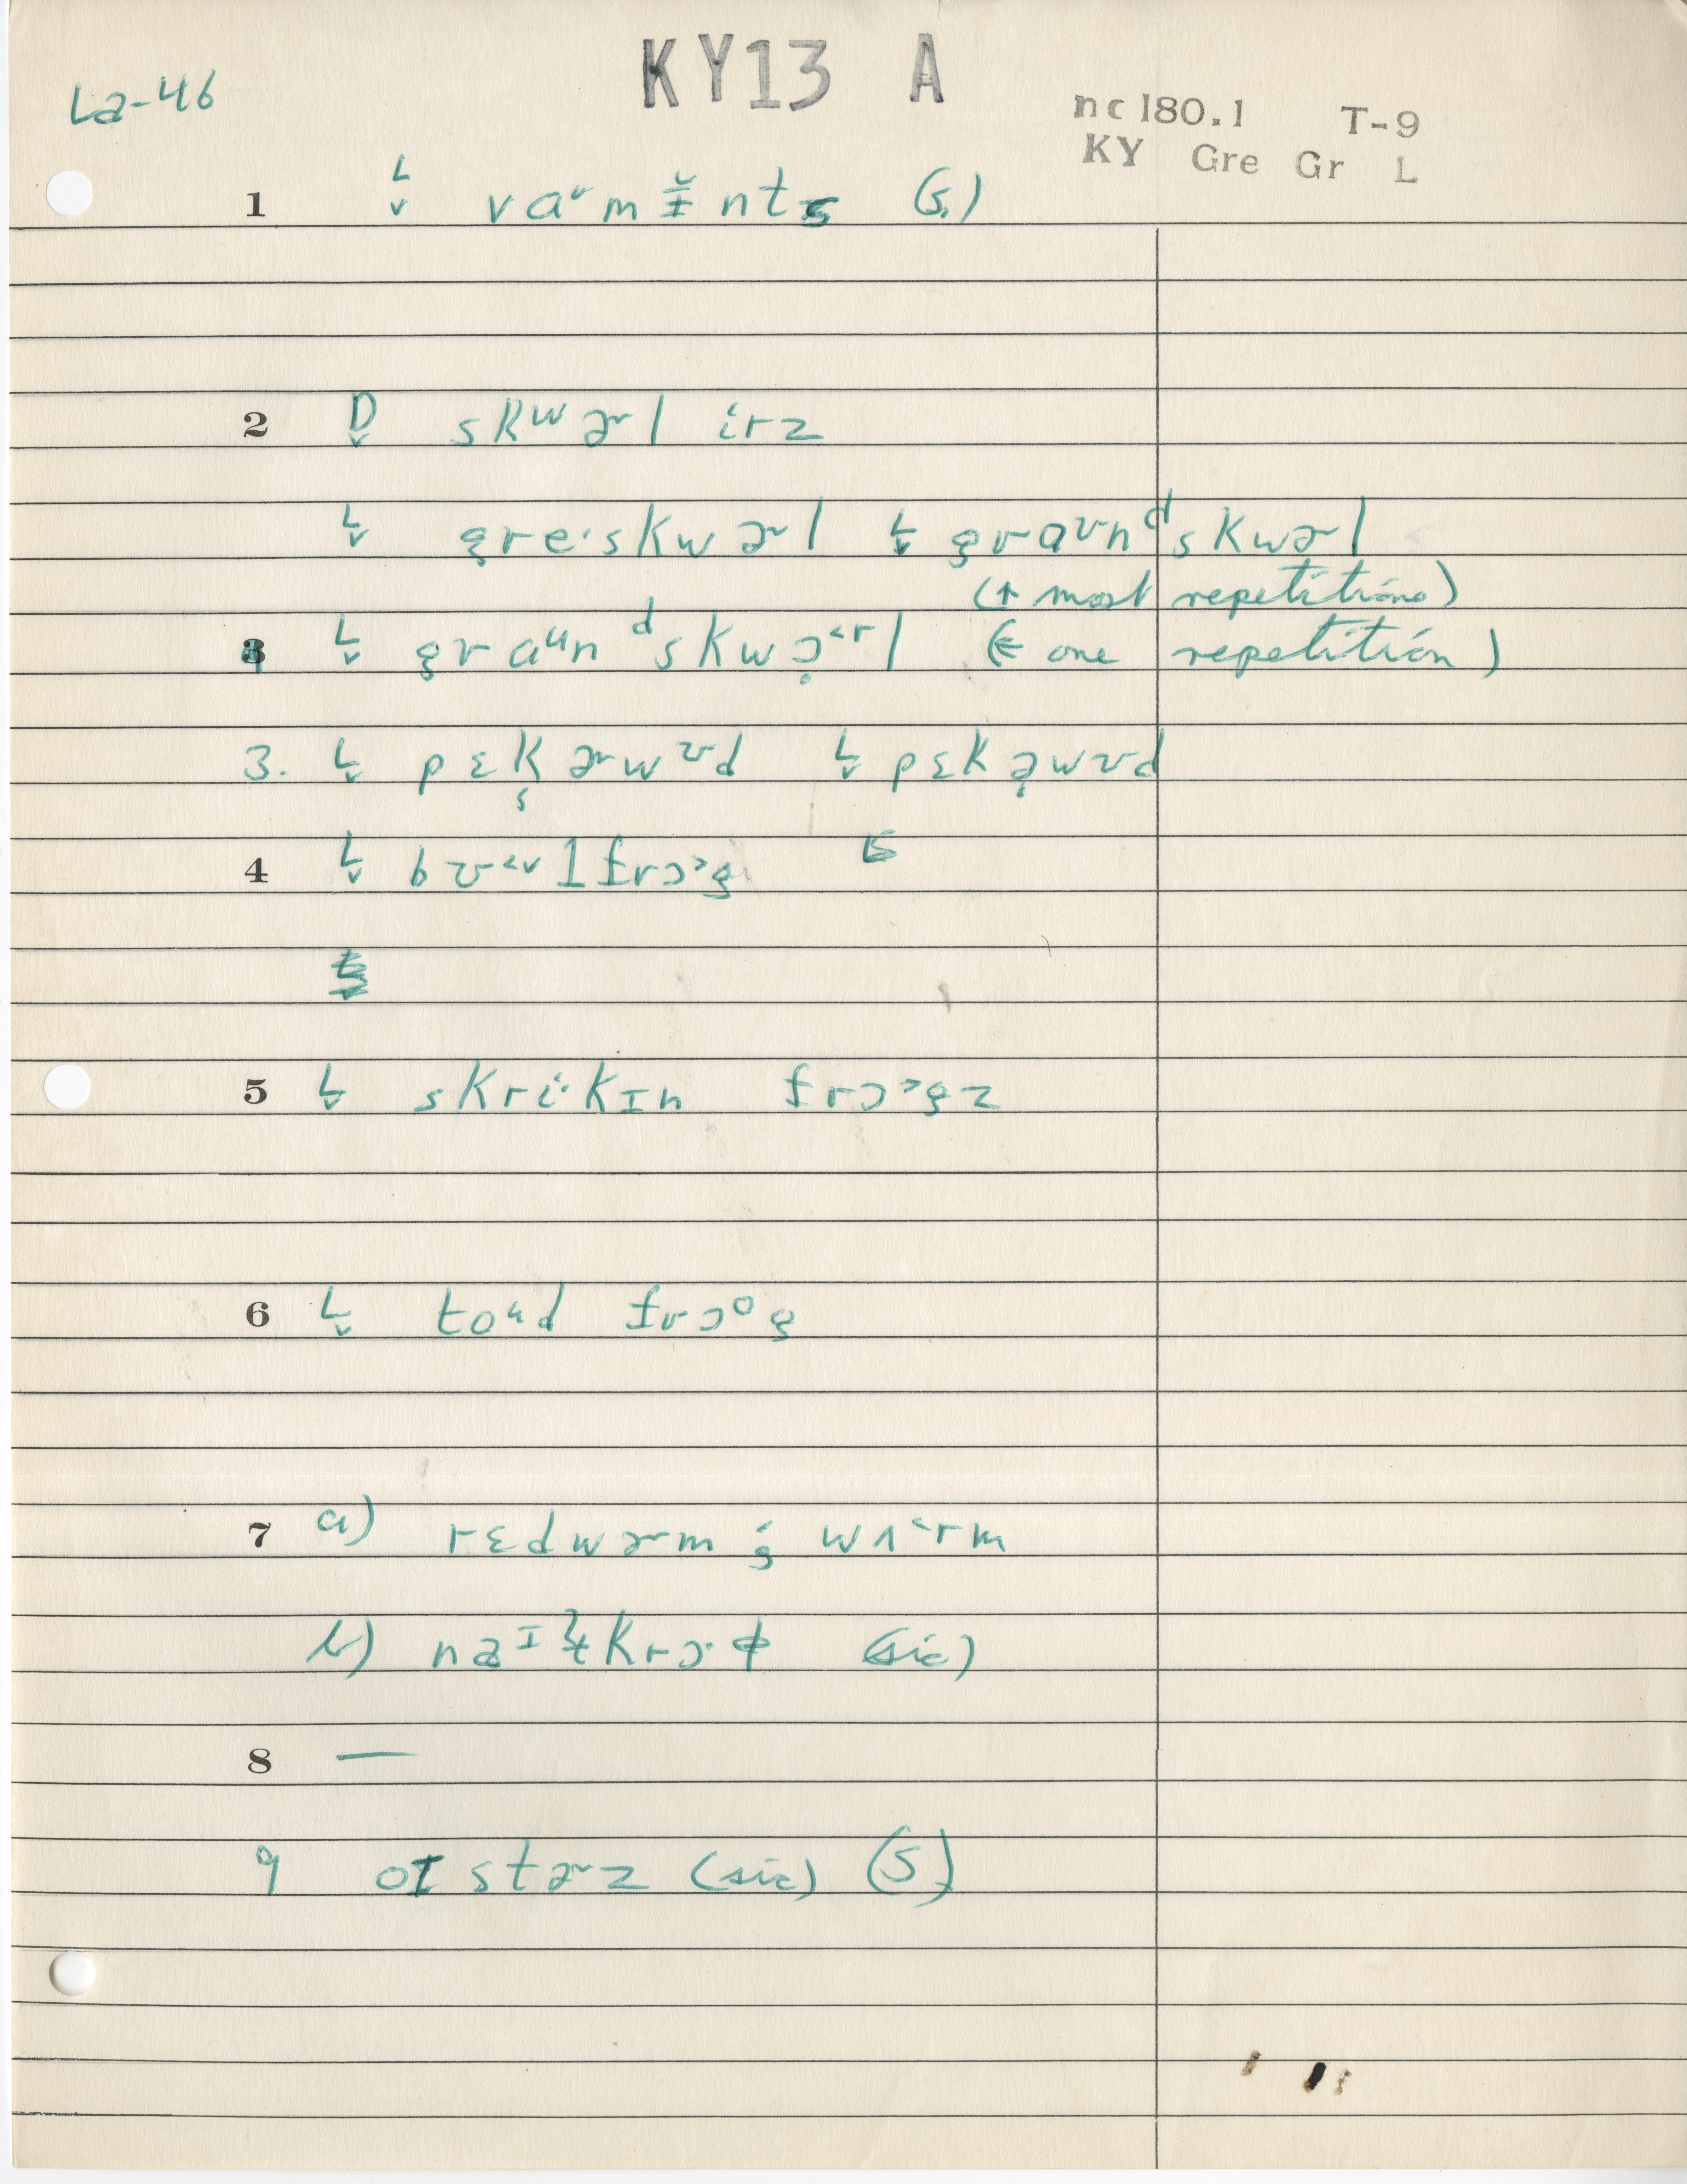 KY13 A
La-46
nc180.1 T-9
KY Gre Gr L
1 L̬ vaᶹmɪ̵̆nts (s.)
2 D̬ skʷɚl irz
L̬ greˑskwɚl L̬ graʊnᵈskwɚl
(↑ most repetitions)
L̬ graᵘnᵈskwɔ̣˂ʳl (← one repetition)
3. L̬ pɛk̬ɚwʊd L̬ pɛkə̣wʊd
4 L̬ bʊ˂ɫfrɔ˃g
5 L̬ skriˑkɪn frɔ˃gz
6 L̬ toᵘd frɔᵒg
7 a) rɛdwɚm ; wʌ˂rm
b) naᶦtkrɔˑɸ (sic)
8 —
9 oɪstɚz (sic) (S)